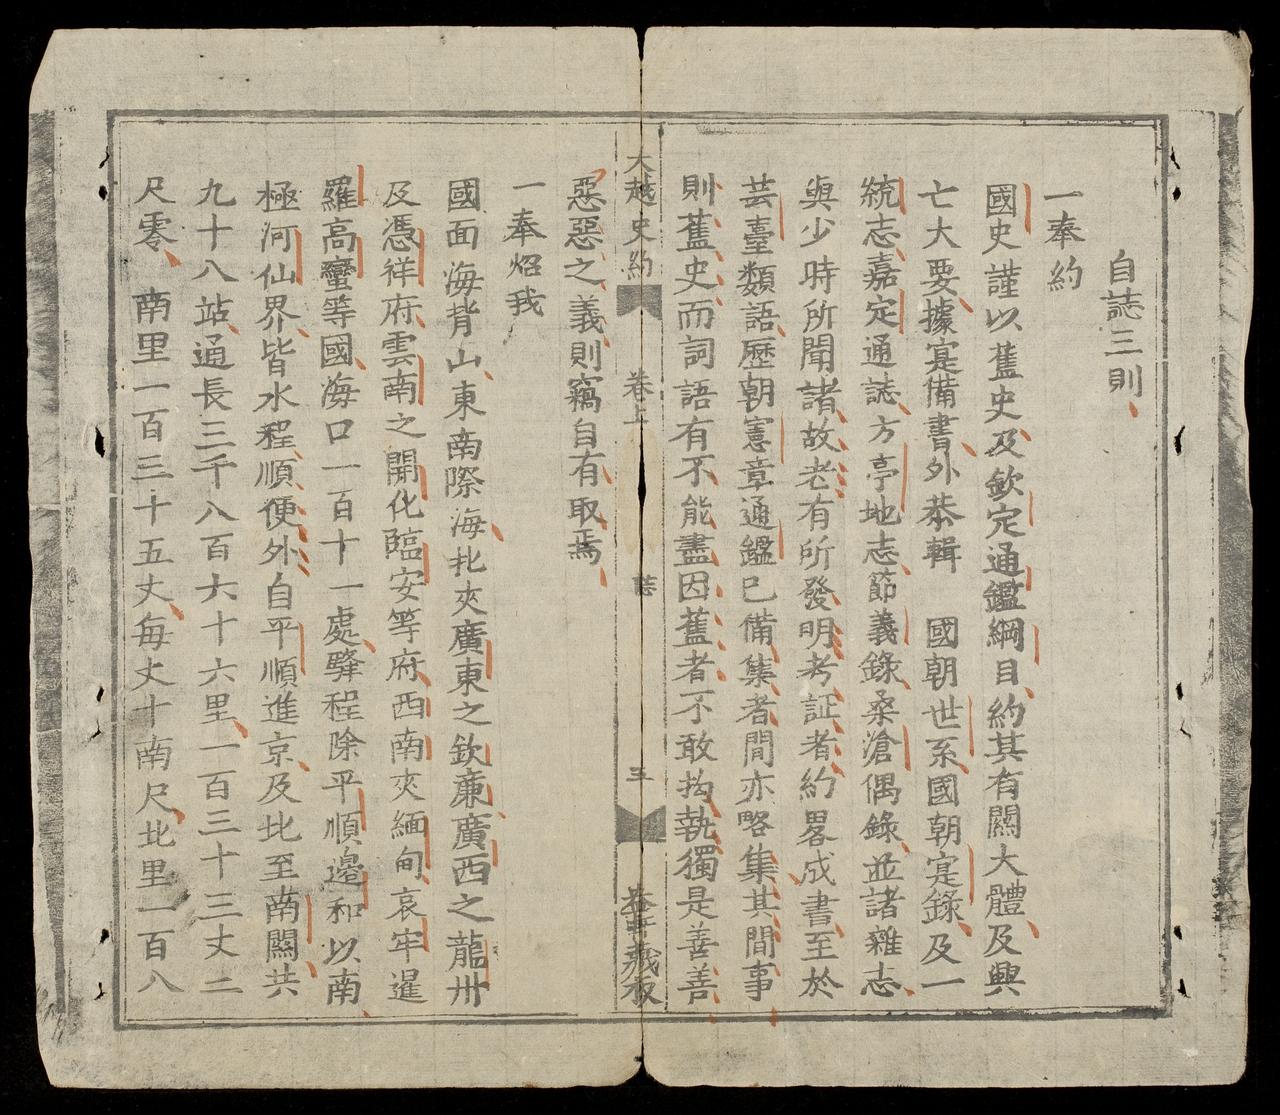 自誌三則
一奉約
國史謹以舊史及欽定通鑑綱目約其有關大體及興
亡大要據寔備書外恭輯　國朝世系國朝寔錄及一
統志嘉定通誌方亭地志節義錄桑滄偶錄並諸雜志
與少時所聞諸故老有所發明考証者約畧成書至於
芸臺類語歷朝憲章通鑑已備集者間亦略集其間事
則舊史而詞語有不能盡因舊者不敢拘執獨是善善
大越史約　卷上　誌　五　板
惡惡之義則竊自有取焉
一奉炤我
國面海背山東南際海北夾廣東之欽廉廣西之龍州
及憑祥府雲南之開化臨安等府西南夾緬甸哀牢暹
羅高蠻等國海口一百十一處驛程除平順邊和以南
極河仙界皆水程順便外自平順進京及北至南關共
九十八站通長三千八百六十六里一百三十三丈二
尺零　南里一百三十五丈每丈十南尺北里一百八